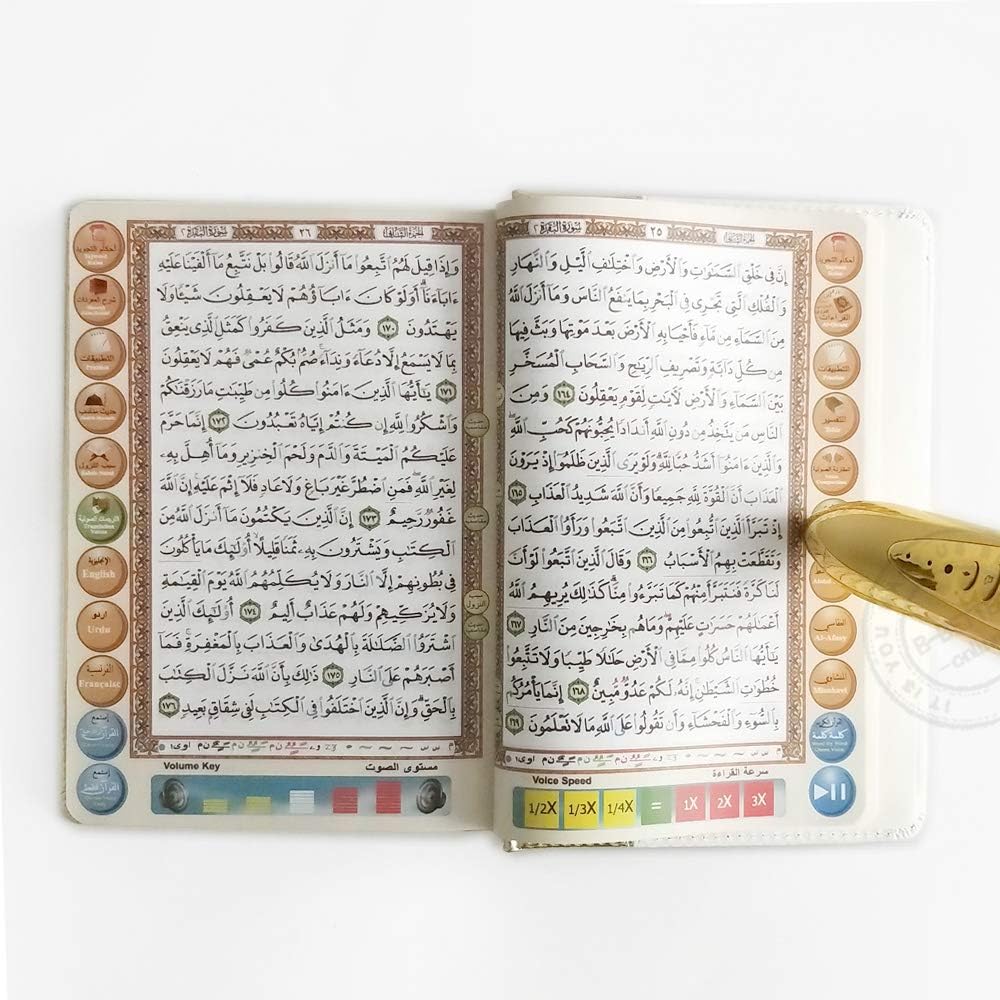 الجزء الثاني ٢٥ سورة البقرة ٢
إِنَّ فِى خَلْقِ ٱلسَّمَـٰوَٰتِ وَٱلْأَرْضِ وَٱخْتِلَـٰفِ ٱلَّيْلِ وَٱلنَّهَارِ
وَٱلْفُلْكِ ٱلَّتِى تَجْرِى فِى ٱلْبَحْرِ بِمَا يَنفَعُ ٱلنَّاسَ وَمَآ أَنزَلَ ٱللَّهُ
مِنَ ٱلسَّمَآءِ مِن مَّآءٍ فَأَحْيَا بِهِ ٱلْأَرْضَ بَعْدَ مَوْتِهَا وَبَثَّ فِيهَا
مِن كُلِّ دَآبَّةٍ وَتَصْرِيفِ ٱلرِّيَـٰحِ وَٱلسَّحَابِ ٱلْمُسَخَّرِ
بَيْنَ ٱلسَّمَآءِ وَٱلْأَرْضِ لَـَٔايَـٰتٍ لِّقَوْمٍ يَعْقِلُونَ ١٦٤ وَمِنَ
ٱلنَّاسِ مَن يَتَّخِذُ مِن دُونِ ٱللَّهِ أَندَادًا يُحِبُّونَهُمْ كَحُبِّ ٱللَّهِ
وَٱلَّذِينَ ءَامَنُوٓا۟ أَشَدُّ حُبًّا لِّلَّهِ وَلَوْ يَرَى ٱلَّذِينَ ظَلَمُوٓا۟ إِذْ يَرَوْنَ
ٱلْعَذَابَ أَنَّ ٱلْقُوَّةَ لِلَّهِ جَمِيعًا وَأَنَّ ٱللَّهَ شَدِيدُ ٱلْعَذَابِ ١٦٥
إِذْ تَبَرَّأَ ٱلَّذِينَ ٱتُّبِعُوا۟ مِنَ ٱلَّذِينَ ٱتَّبَعُوا۟ وَرَأَوُا۟ ٱلْعَذَابَ
وَتَقَطَّعَتْ بِهِمُ ٱلْأَسْبَابُ ١٦٦ وَقَالَ ٱلَّذِينَ ٱتَّبَعُوا۟ لَوْ أَنَّ
لَنَا كَرَّةً فَنَتَبَرَّأَ مِنْهُمْ كَمَا تَبَرَّءُوا۟ مِنَّا كَذَٰلِكَ يُرِيهِمُ ٱللَّهُ
أَعْمَـٰلَهُمْ حَسَرَٰتٍ عَلَيْهِمْ وَمَا هُم بِخَـٰرِجِينَ مِنَ ٱلنَّارِ ١٦٧
يَـٰٓأَيُّهَا ٱلنَّاسُ كُلُوا۟ مِمَّا فِى ٱلْأَرْضِ حَلَـٰلًا طَيِّبًا وَلَا تَتَّبِعُوا۟
خُطُوَٰتِ ٱلشَّيْطَـٰنِ إِنَّهُۥ لَكُمْ عَدُوٌّ مُّبِينٌ ١٦٨ إِنَّمَا يَأْمُرُكُم
بِٱلسُّوٓءِ وَٱلْفَحْشَآءِ وَأَن تَقُولُوا۟ عَلَى ٱللَّهِ مَا لَا تَعْلَمُونَ ١٦٩
سرعة القراءة
Voice Speed
1/2X 1/3X 1/4X = 1X 2X 3X
أحكام التجويد
القراءات
التطبيقات
التفسير
المقارنة الصوتية
العفاسي
Al-Afasy
المنشاوي
Minshawi
كلمة كلمة
الجزء الثاني ٢٦ سورة البقرة ٢
وَإِذَا قِيلَ لَهُمُ ٱتَّبِعُوا۟ مَآ أَنزَلَ ٱللَّهُ قَالُوا۟ بَلْ نَتَّبِعُ مَآ أَلْفَيْنَا عَلَيْهِ
ءَابَآءَنَآ أَوَلَوْ كَانَ ءَابَآؤُهُمْ لَا يَعْقِلُونَ شَيْـًٔا وَلَا
يَهْتَدُونَ ١٧٠ وَمَثَلُ ٱلَّذِينَ كَفَرُوا۟ كَمَثَلِ ٱلَّذِى يَنْعِقُ
بِمَا لَا يَسْمَعُ إِلَّا دُعَآءً وَنِدَآءً صُمٌّۢ بُكْمٌ عُمْىٌ فَهُمْ لَا يَعْقِلُونَ
١٧١ يَـٰٓأَيُّهَا ٱلَّذِينَ ءَامَنُوا۟ كُلُوا۟ مِن طَيِّبَـٰتِ مَا رَزَقْنَـٰكُمْ
وَٱشْكُرُوا۟ لِلَّهِ إِن كُنتُمْ إِيَّاهُ تَعْبُدُونَ ١٧٢ إِنَّمَا حَرَّمَ
عَلَيْكُمُ ٱلْمَيْتَةَ وَٱلدَّمَ وَلَحْمَ ٱلْخِنزِيرِ وَمَآ أُهِلَّ بِهِۦ
لِغَيْرِ ٱللَّهِ فَمَنِ ٱضْطُرَّ غَيْرَ بَاغٍ وَلَا عَادٍ فَلَآ إِثْمَ عَلَيْهِ إِنَّ ٱللَّهَ
غَفُورٌ رَّحِيمٌ ١٧٣ إِنَّ ٱلَّذِينَ يَكْتُمُونَ مَآ أَنزَلَ ٱللَّهُ مِنَ
ٱلْكِتَـٰبِ وَيَشْتَرُونَ بِهِۦ ثَمَنًا قَلِيلًا أُو۟لَـٰٓئِكَ مَا يَأْكُلُونَ
فِى بُطُونِهِمْ إِلَّا ٱلنَّارَ وَلَا يُكَلِّمُهُمُ ٱللَّهُ يَوْمَ ٱلْقِيَـٰمَةِ
وَلَا يُزَكِّيهِمْ وَلَهُمْ عَذَابٌ أَلِيمٌ ١٧٤ أُو۟لَـٰٓئِكَ ٱلَّذِينَ
ٱشْتَرَوُا۟ ٱلضَّلَـٰلَةَ بِٱلْهُدَىٰ وَٱلْعَذَابَ بِٱلْمَغْفِرَةِ فَمَآ
أَصْبَرَهُمْ عَلَى ٱلنَّارِ ١٧٥ ذَٰلِكَ بِأَنَّ ٱللَّهَ نَزَّلَ ٱلْكِتَـٰبَ
بِٱلْحَقِّ وَإِنَّ ٱلَّذِينَ ٱخْتَلَفُوا۟ فِى ٱلْكِتَـٰبِ لَفِى شِقَاقٍۭ بَعِيدٍ ١٧٦
مستوى الصوت
Volume Key
أحكام التجويد
شرح المفردات
التطبيقات
سبب النزول
الترجمات الصوتية
Translation Voices
الإنجليزية
English
اردو
Urdu
الفرنسية
Française
إستمع
إستمع